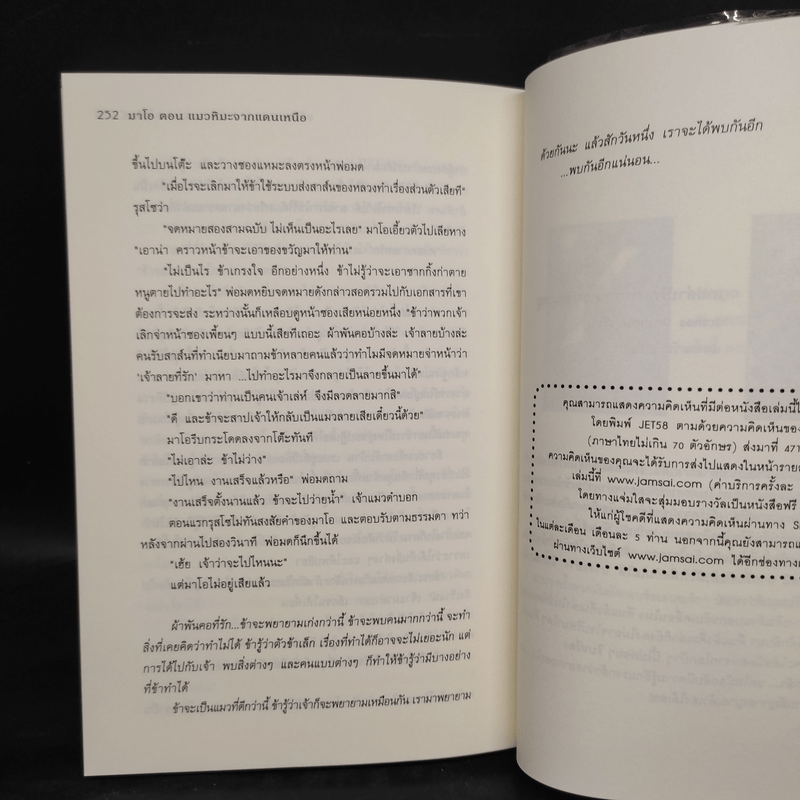 252 มาโอ ตอน แมวหิมะจากแดนเหนือ
ขึ้นไปบนโต๊ะ และวางซองแหมะลงตรงหน้าพ่อมด
"เมื่อไรจะเลิกมาให้ข้าใช้ระบบส่งสาส์นของหลวงทำเรื่องส่วนตัวเสียที"
รุสโซว่า
"จดหมายสองสามฉบับ ไม่เห็นเป็นอะไรเลย" มาโอเอี้ยวตัวไปเลียหาง
"เอาน่า คราวหน้าข้าจะเอาของขวัญมาให้ท่าน"
"ไม่เป็นไร ข้าเกรงใจ อีกอย่างหนึ่ง ข้าไม่รู้ว่าจะเอาซากกิ้งก่าตาย
หนูตายไปทำอะไร" พ่อมดหยิบจดหมายดังกล่าวสอดรวมไปกับเอกสารที่เขา
ต้องการจะส่ง ระหว่างนั้นก็เหลือบดูหน้าซองเสียหน่อยหนึ่ง "ข้าว่าพวกเจ้า
เลิกจ่าหน้าซองเพี้ยนๆ แบบนี้เสียทีเถอะ ผ้าพันคอบ้างล่ะ เจ้าลายบ้างล่ะ
คนรับสาส์นที่ทำเนียบมาถามข้าหลายคนแล้วว่าทำไมมีจดหมายจ่าหน้าว่า
'เจ้าลายที่รัก' มาหา ...ไปทำอะไรมาจึงกลายเป็นลายขึ้นมาได้"
"บอกเขาว่าท่านเป็นคนเจ้าเล่ห์ จึงมีลวดลายมากสิ"
"ดี และข้าจะสาปเจ้าให้กลับเป็นแมวลายเสียเดี๋ยวนี้ด้วย"
มาโอรีบกระโดดลงจากโต๊ะทันที
"ไม่เอาล่ะ ข้าไม่ว่าง"
"ไปไหน งานเสร็จแล้วหรือ" พ่อมดถาม
"งานเสร็จตั้งนานแล้ว ข้าจะไปว่ายน้ำ" เจ้าแมวดำบอก
ตอนแรกรุสโซไม่ทันสงสัยคำของมาโอ และตอบรับตามธรรมดา ทว่า
หลังจากผ่านไปสองวินาที พ่อมดก็นึกขึ้นได้
"เฮ้ย เจ้าว่าจะไปไหนนะ"
แต่มาโอไม่อยู่เสียแล้ว
ผ้าพันคอที่รัก...ข้าจะพยายามเก่งกว่านี้ ข้าจะพบคนมากกว่านี้ จะทำ
สิ่งที่เคยคิดว่าทำไม่ได้ ข้ารู้ว่าตัวข้าเล็ก เรื่องที่ทำได้ก็อาจจะไม่เยอะนัก แต่
การได้ไปกับเจ้า พบสิ่งต่างๆ และคนแบบต่างๆ ก็ทำให้ข้ารู้ว่ามีบางอย่าง
ที่ข้าทำได้
ข้าจะเป็นแมวที่ดีกว่านี้ ข้ารู้ว่าเจ้าก็จะพยายามเหมือนกัน เรามาพยายาม
ด้วยกันนะ แล้วสักวันหนึ่ง เราจะได้พบกันอีก
...พบกันอีกแน่นอน...
คุณสามารถแสดงความคิดเห็นที่มีต่อหนังสือเล่มนี้ได้
โดยพิมพ์ JET58 ตามด้วยความคิดเห็นของ
(ภาษาไทยไม่เกิน 70 ตัวอักษร) ส่งมาที่ 471
ความคิดเห็นของคุณจะได้รับการส่งไปแสดงในหน้าราย
เล่มนี้ที่ www.jamsai.com (ค่าบริการครั้งละ
โดยทางแจ่มใสจะสุ่มมอบรางวัลเป็นหนังสือฟรี
ให้แก่ผู้โชคดีที่แสดงความคิดเห็นผ่านทาง S
ในแต่ละเดือน เดือนละ 5 ท่าน นอกจากนี้คุณยังสามารถแ
ผ่านทางเว็บไซต์ www.jamsai.com ได้อีกช่องทาง